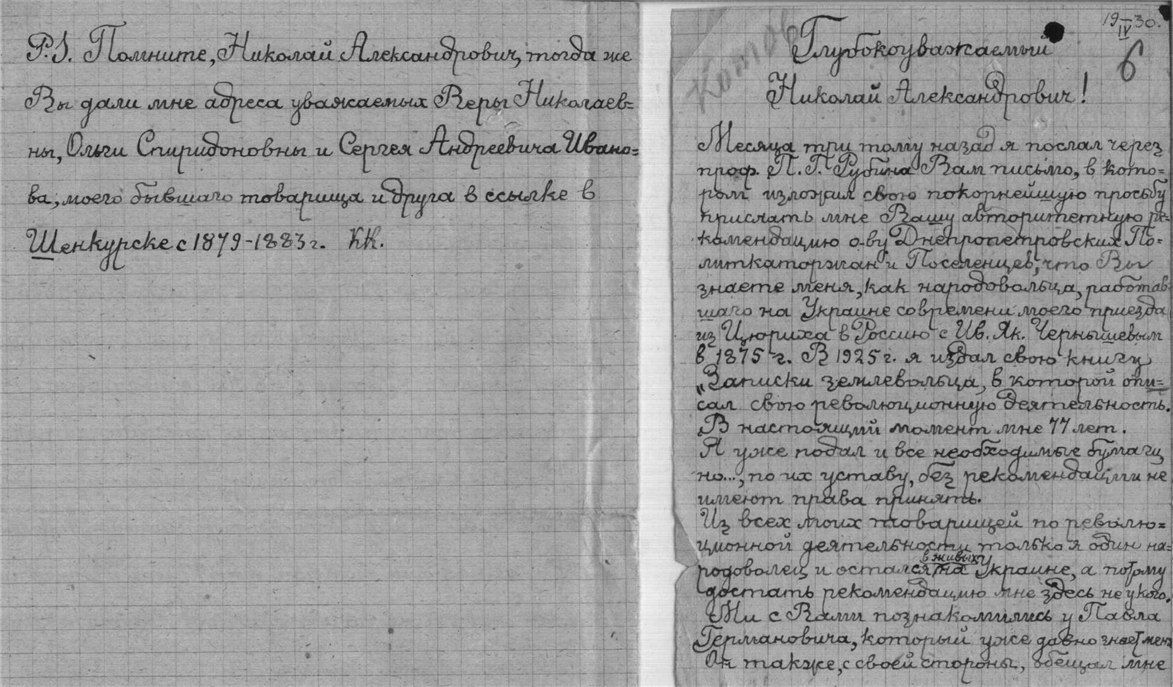 P.S. Помните, Николай Александрович, тогда же
Вы дали мне адреса уважаемых Веры Николаев=
ны, Ольги Спиридоновны и Сергея Андреевича Ивано=
ва, моего бывшаго товарища и друга в ссылке в
Шенкурске с 1879-1883 г. КК.
19 30.
IV
6
Котов
Глубокоуважаемый
Николай Александрович!
Месяца три тому назад я послал через
проф. П. Г. Рубина Вам письмо, в кото=
ром изложил свою покорнейшую просьбу
прислать мне Вашу авторитетную ре=
комендацию о-ву Днепропетровских По=
литкаторжан и Поселенцев, что Вы
знаете меня, как народовольца, работав=
шаго на Украине со времени моего приезда
из Цюриха в Россию с Ив. Як. Чернышевым
в 1875 г. В 1925 г. я издал свою книгу
„Записки землевольца, в которой опи=
сал свою революционную деятельность.
В настоящий момент мне 77 лет.
Я уже подал и все необходимые бумаги,
но..., по их уставу, без рекомендации не
имеют права принять.
Из всех моих товарищей по револю=
ционной деятельности только я один на=
родоволец и остался в живых на Украине, а потому
достать рекомендацию мне здесь не у кого.
Мы с Вами познакомились у Павла
Германовича, который уже давно знает меня
Он также, с своей стороны, обещал мне